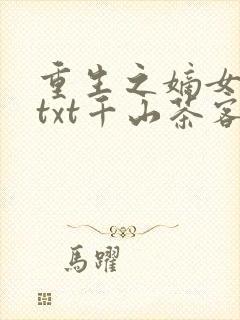 重生之嫡女
txt千山茶客
馬躍